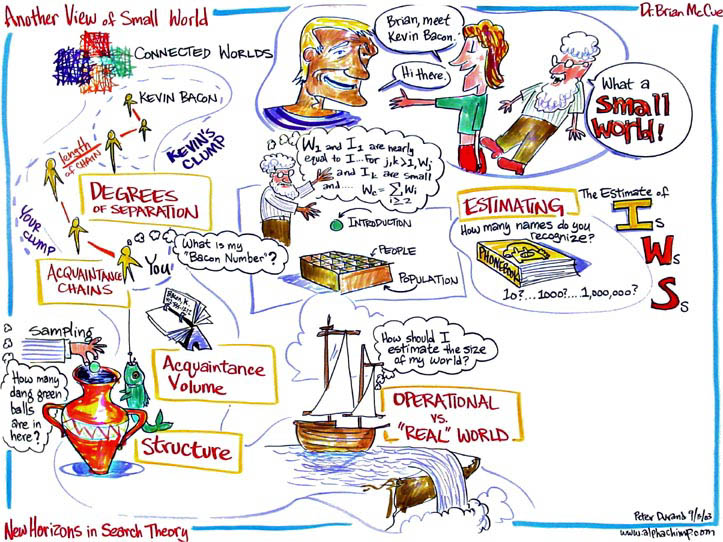 Another View of Small World
Dr. Brian McCue
CONNECTED WORLDS
KEVIN BACON
KEVIN'S
CLUMP
length
of CHAIN
DEGREES
OF SEPARATION
YOUR
CLUMP
YOU
ACQUAINTANCE
CHAINS
What is my
"Bacon Number"?
Brian, meet
Kevin Bacon.
Hi there.
What a
small
World!
W1 and I1 are nearly
equal to I...For j,k>1, Wj
and Ik are small
and.... Wc = ∑ Wi
i≥2
INTRODUCTION
PEOPLE
POPULATION
ESTIMATING
How many names do you
recognize?
PHONEBOOK
10?...1000?....1,000,000?
The Estimate of
Is
Ws
Ss
Sampling
How many
dang green
balls
are in
here?
Bacon K.
Acquaintance
Volume
Structure
How should I
estimate the size
of my world?
OPERATIONAL
vs.
"REAL" WORLD
New Horizons in Search Theory
Peter Durand 9/5/03
www.alphachimp.com